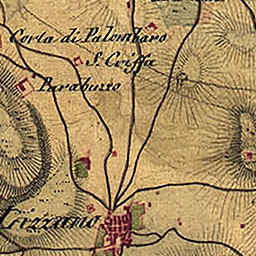 Corta di Palombaro
S. Coiffa
Paraburro
Crizzano